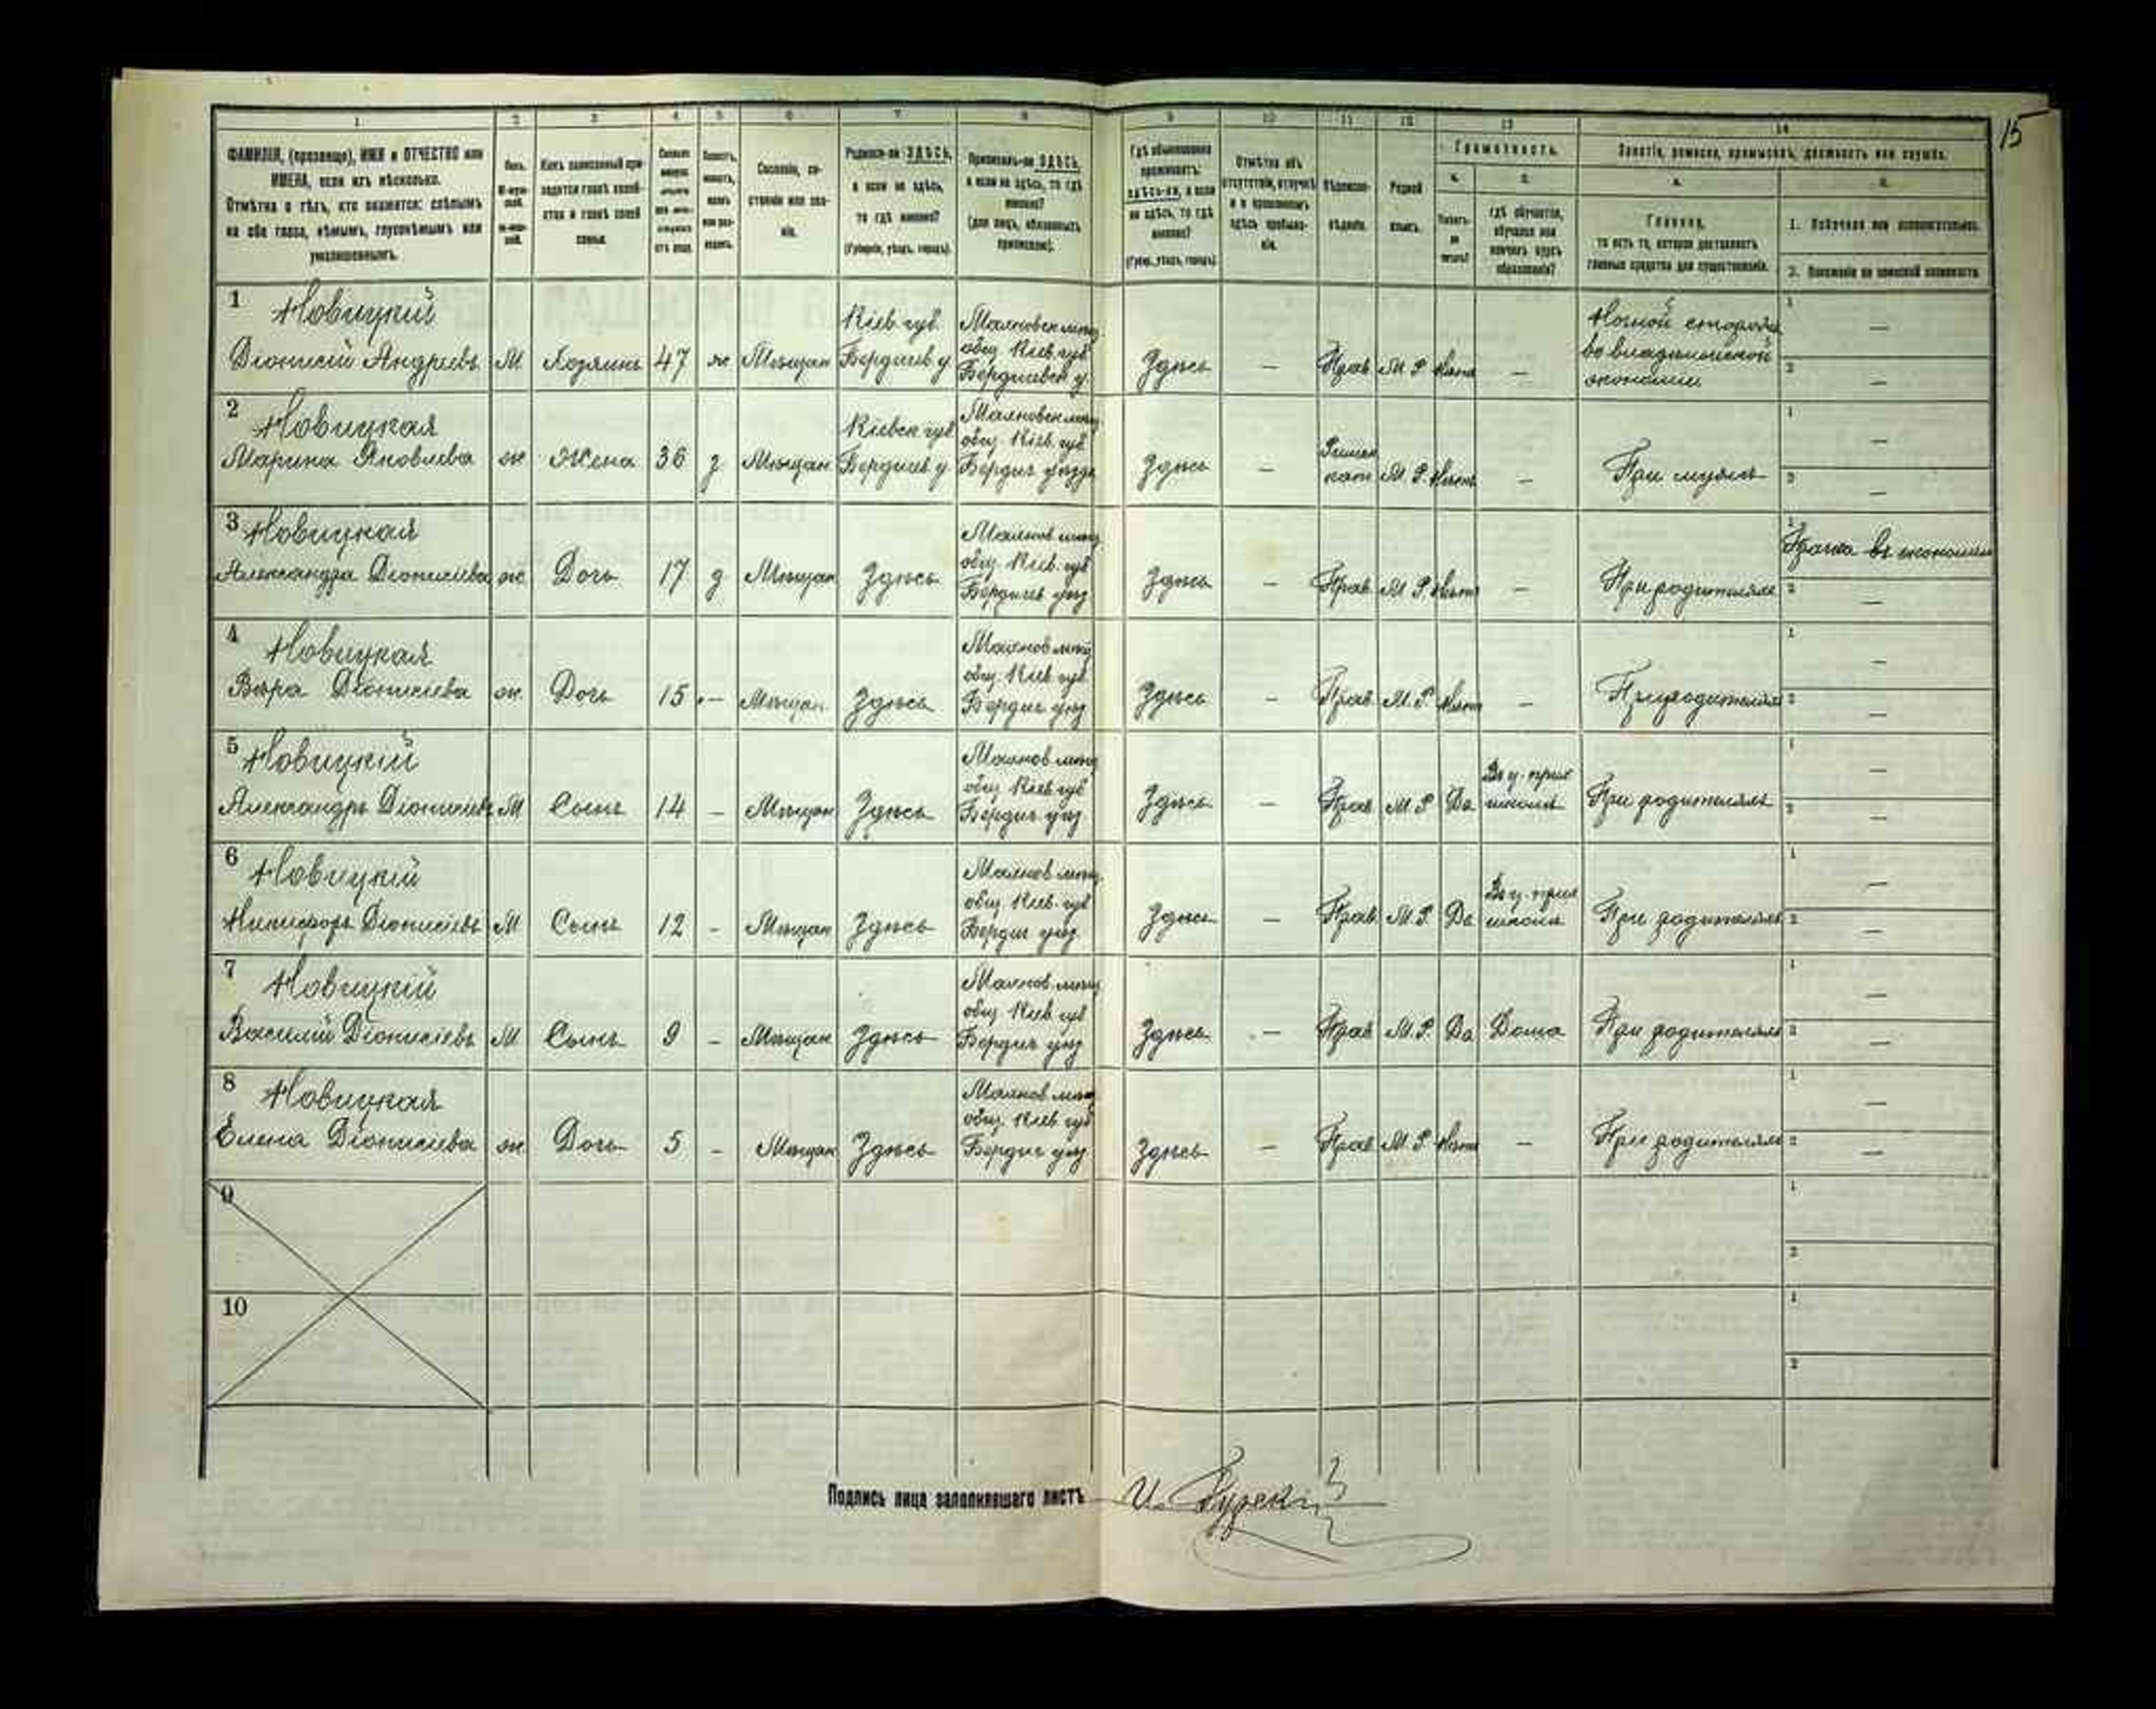 15
1 2 3 4 5 6 7 8 9 10 11 12 13 14
ФАМИЛІЯ, (прозвище), ИМЯ и ОТЧЕСТВО или
ИМЕНА, если ихъ нѣсколько.
Отмѣтка о тѣхъ, кто окажется: слѣпымъ
на оба глаза, нѣмымъ, глухонѣмымъ или
умалишеннымъ.
Полъ.
Сословіе, со-
стояніе или зва-
ніе.
Родился-ли ЗДѢСЬ,
а если не здѣсь,
то гдѣ именно?
(Губернія, уѣздъ, городъ).
Приписанъ-ли ЗДѢСЬ,
а если не здѣсь, то гдѣ
именно?
(для лицъ, обязанныхъ
припискою).
Гдѣ обыкновенно
проживаетъ:
здѣсь-ли, а если
не здѣсь, то гдѣ
именно?
(Губ., уѣздъ, городъ)
Отмѣтка объ
отсутствіи, отлучкѣ
и о временномъ
здѣсь пребыва-
ніи.
Вѣроиспо-
вѣданіе.
Родной
языкъ.
Грамотность.
гдѣ обучается,
обучался или
кончилъ курсъ
образованія?
Занятіе, ремесло, промыселъ, должность или служба.
Главное,
то есть то, которое доставляетъ
главныя средства для существованія.
1. Побочное или вспомогательное.
2. Положеніе по воинской повинности.
1 Новицкій
Діонисій Андреевъ М Хозяинъ 47 ж Мѣщан Кіев. губ. Бердичев у Махновск мѣщ общ. Кіев. губ Бердичевск у. Здѣсь — Прав М Р Нѣтъ — Ночной сторожъ во владѣльческой экономіи — —
2 Новицкая
Марина Яковлева ж Жена 36 з Мѣщан Кіевск губ Бердичев у Махновск мѣщ общ. Кіев. губ Бердич уѣзд Здѣсь — Римск кат М. Р. Нѣтъ — При мужѣ — —
3 Новицкая
Александра Діонисіева ж Дочь 17 д Мѣщан Здѣсь Махнов мѣщ общ. Кіев. губ Бердичев уѣз Здѣсь — Прав М Р. Нѣтъ — При родителях Прачка въ экономіи —
4 Новицкая
Вѣра Діонисіева ж Дочь 15 — Мѣщан Здѣсь Махнов мѣщ общ Кіев губ Бердич уѣз Здѣсь — Прав М. Р. Нѣт — При родителях — —
5 Новицкій
Александръ Діонисіевъ М Сынъ 14 — Мѣщан Здѣсь Махнов мѣщ общ Кіев губ Бердич уѣз Здѣсь — Прав М Р Да школѣ При родителяхъ — —
6 Новицкій
Никифоръ Діонисіевъ М Сынъ 12 - Мѣщан Здѣсь Махнов мѣщ. общ Кіев. губ Бердич уѣз. Здѣсь — Прав М. Р. Да школѣ При родителях — —
7 Новицкій
Василій Діонисіевъ М Сынъ 9 - Мѣщан Здѣсь Махнов. мѣщ общ Кіев губ Бердич уѣз Здѣсь — Прав М. Р. Да Дома При родителях — —
8 Новицкая
Елена Діонисіева ж Дочь 5 - Мѣщан Здѣсь Махнов мѣщ общ. Кіев губ Бердич уѣз. Здѣсь — Прав М. Р Нѣт — При родителях — —
9
10
Подпись лица заполнявшаго листъ